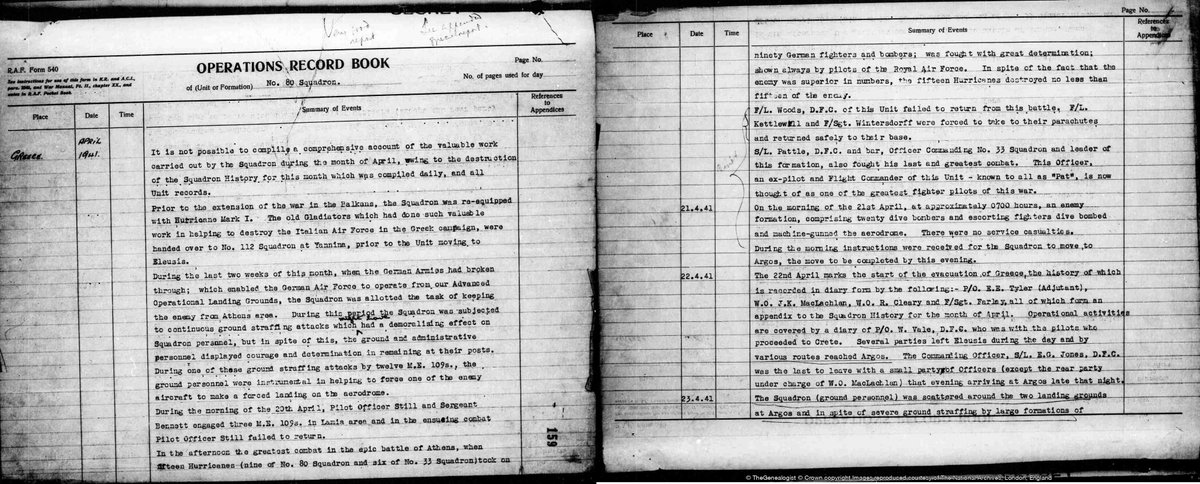 SECRET
R.A.F. Form 540
See instructions for use of this form in K.R. and A.C.I.,
para. 2349, and War Manual, Pt. II., chapter XX., and
notes in R.A.F. Pocket Book.
OPERATIONS RECORD BOOK
Page No.
of (Unit or Formation) No. 80 Squadron.
No. of pages used for day
Place
Date
Time
Summary of Events
References
to
Appendices
Greece.
APRIL
1941.
It is not possible to complile a comprehensive account of the valuable work
carried out by the Squadron during the month of April, owing to the destruction
of the Squadron History for this month which was compiled daily, and all
Unit records.
Prior to the extension of the war in the Balkans, the Squadron was re-equipped
with Hurricane Mark I. The old Gladiators which had done such valuable
work in helping to destroy the Italian Air Force in the Greek campaign, were
handed over to No. 112 Squadron at Yannina, prior to the Unit moving to
Eleusis.
During the last two weeks of this month, when the German Armies had broken
through; which enabled the German Air Force to operate from our Advanced
Operational Landing Grounds, the Squadron was allotted the task of keeping
the enemy from Athens area. During this period the Squadron was subjected
to continuous ground straffing attacks which had a demoralising effect on
Squadron personnel, but in spite of this, the ground and administrative
personnel displayed courage and determination in remaining at their posts.
During one of these ground straffing attacks by twelve M.E. 109s., the
ground personnel were instrumental in helping to force one of the enemy
aircraft to make a forced landing on the aerodrome.
During the morning of the 20th April, Pilot Officer Still and Sergeant
Bennett engaged three M.E. 109s. in Lamia area and in the ensueing combat
Pilot Officer Still failed to return.
In the afternoon the greatest combat in the epic battle of Athens, when
fifteen Hurricanes (nine of No. 80 Squadron and six of No. 33 Squadron)took on
159
Page No.
Place
Date
Time
Summary of Events
References
to
Appendices
ninety German fighters and bombers; was fought with great determination;
shown always by pilots of the Royal Air Force. In spite of the fact that the
enemy was superior in numbers, the fifteen Hurricanes destroyed no less than
fifteen of the enemy.
F/L. Woods, D.F.C. of this Unit failed to return from this battle. F/L.
Kettlewell and F/Sgt. Wintersdorff were forced to take to their parachutes
and returned safely to their base.
S/L. Pattle, D.F.C. and bar, Officer Commanding No. 33 Squadron and leader of
this formation, also fought his last and greatest combat. This Officer,
an ex-pilot and Flight Commander of this Unit - known to all as "Pat", is now
thought of as one of the greatest fighter pilots of this war.
21.4.41 On the morning of the 21st April, at approximately 0700 hours, an enemy
formation, comprising twenty dive bombers and escorting fighters dive bombed
and machine-gunned the aerodrome. There were no service casualties.
During the morning instructions were received for the Squadron to move to
Argos, the move to be completed by this evening.
22.4.41 The 22nd April marks the start of the evacuation of Greece,the history of which
is recorded in diary form by the following:- P/O. E.E. Tyler (Adjutant),
W.O. J.K. MacLachlan, W.O. R. Cleary and F/Sgt. Farley, all of which form an
appendix to the Squadron History for the month of April. Operational activities
are covered by a diary of P/O. W. Vale, D.F.C. who was with the pilots who
proceeded to Crete. Several parties left Eleusis during the day and by
various routes reached Argos. The Commanding Officer, S/L. E.G. Jones, D.F.C.
was the last to leave with a small party of Officers (except the rear party
under charge of W.O. MacLachlan) that evening arriving at Argos late that night.
23.4.41 The Squadron (ground personnel) was scattered around the two landing grounds
at Argos and in spite of severe ground straffing by large formations of
© TheGenealogist © Crown copyright images reproduced courtesy of The National Archives, London, England